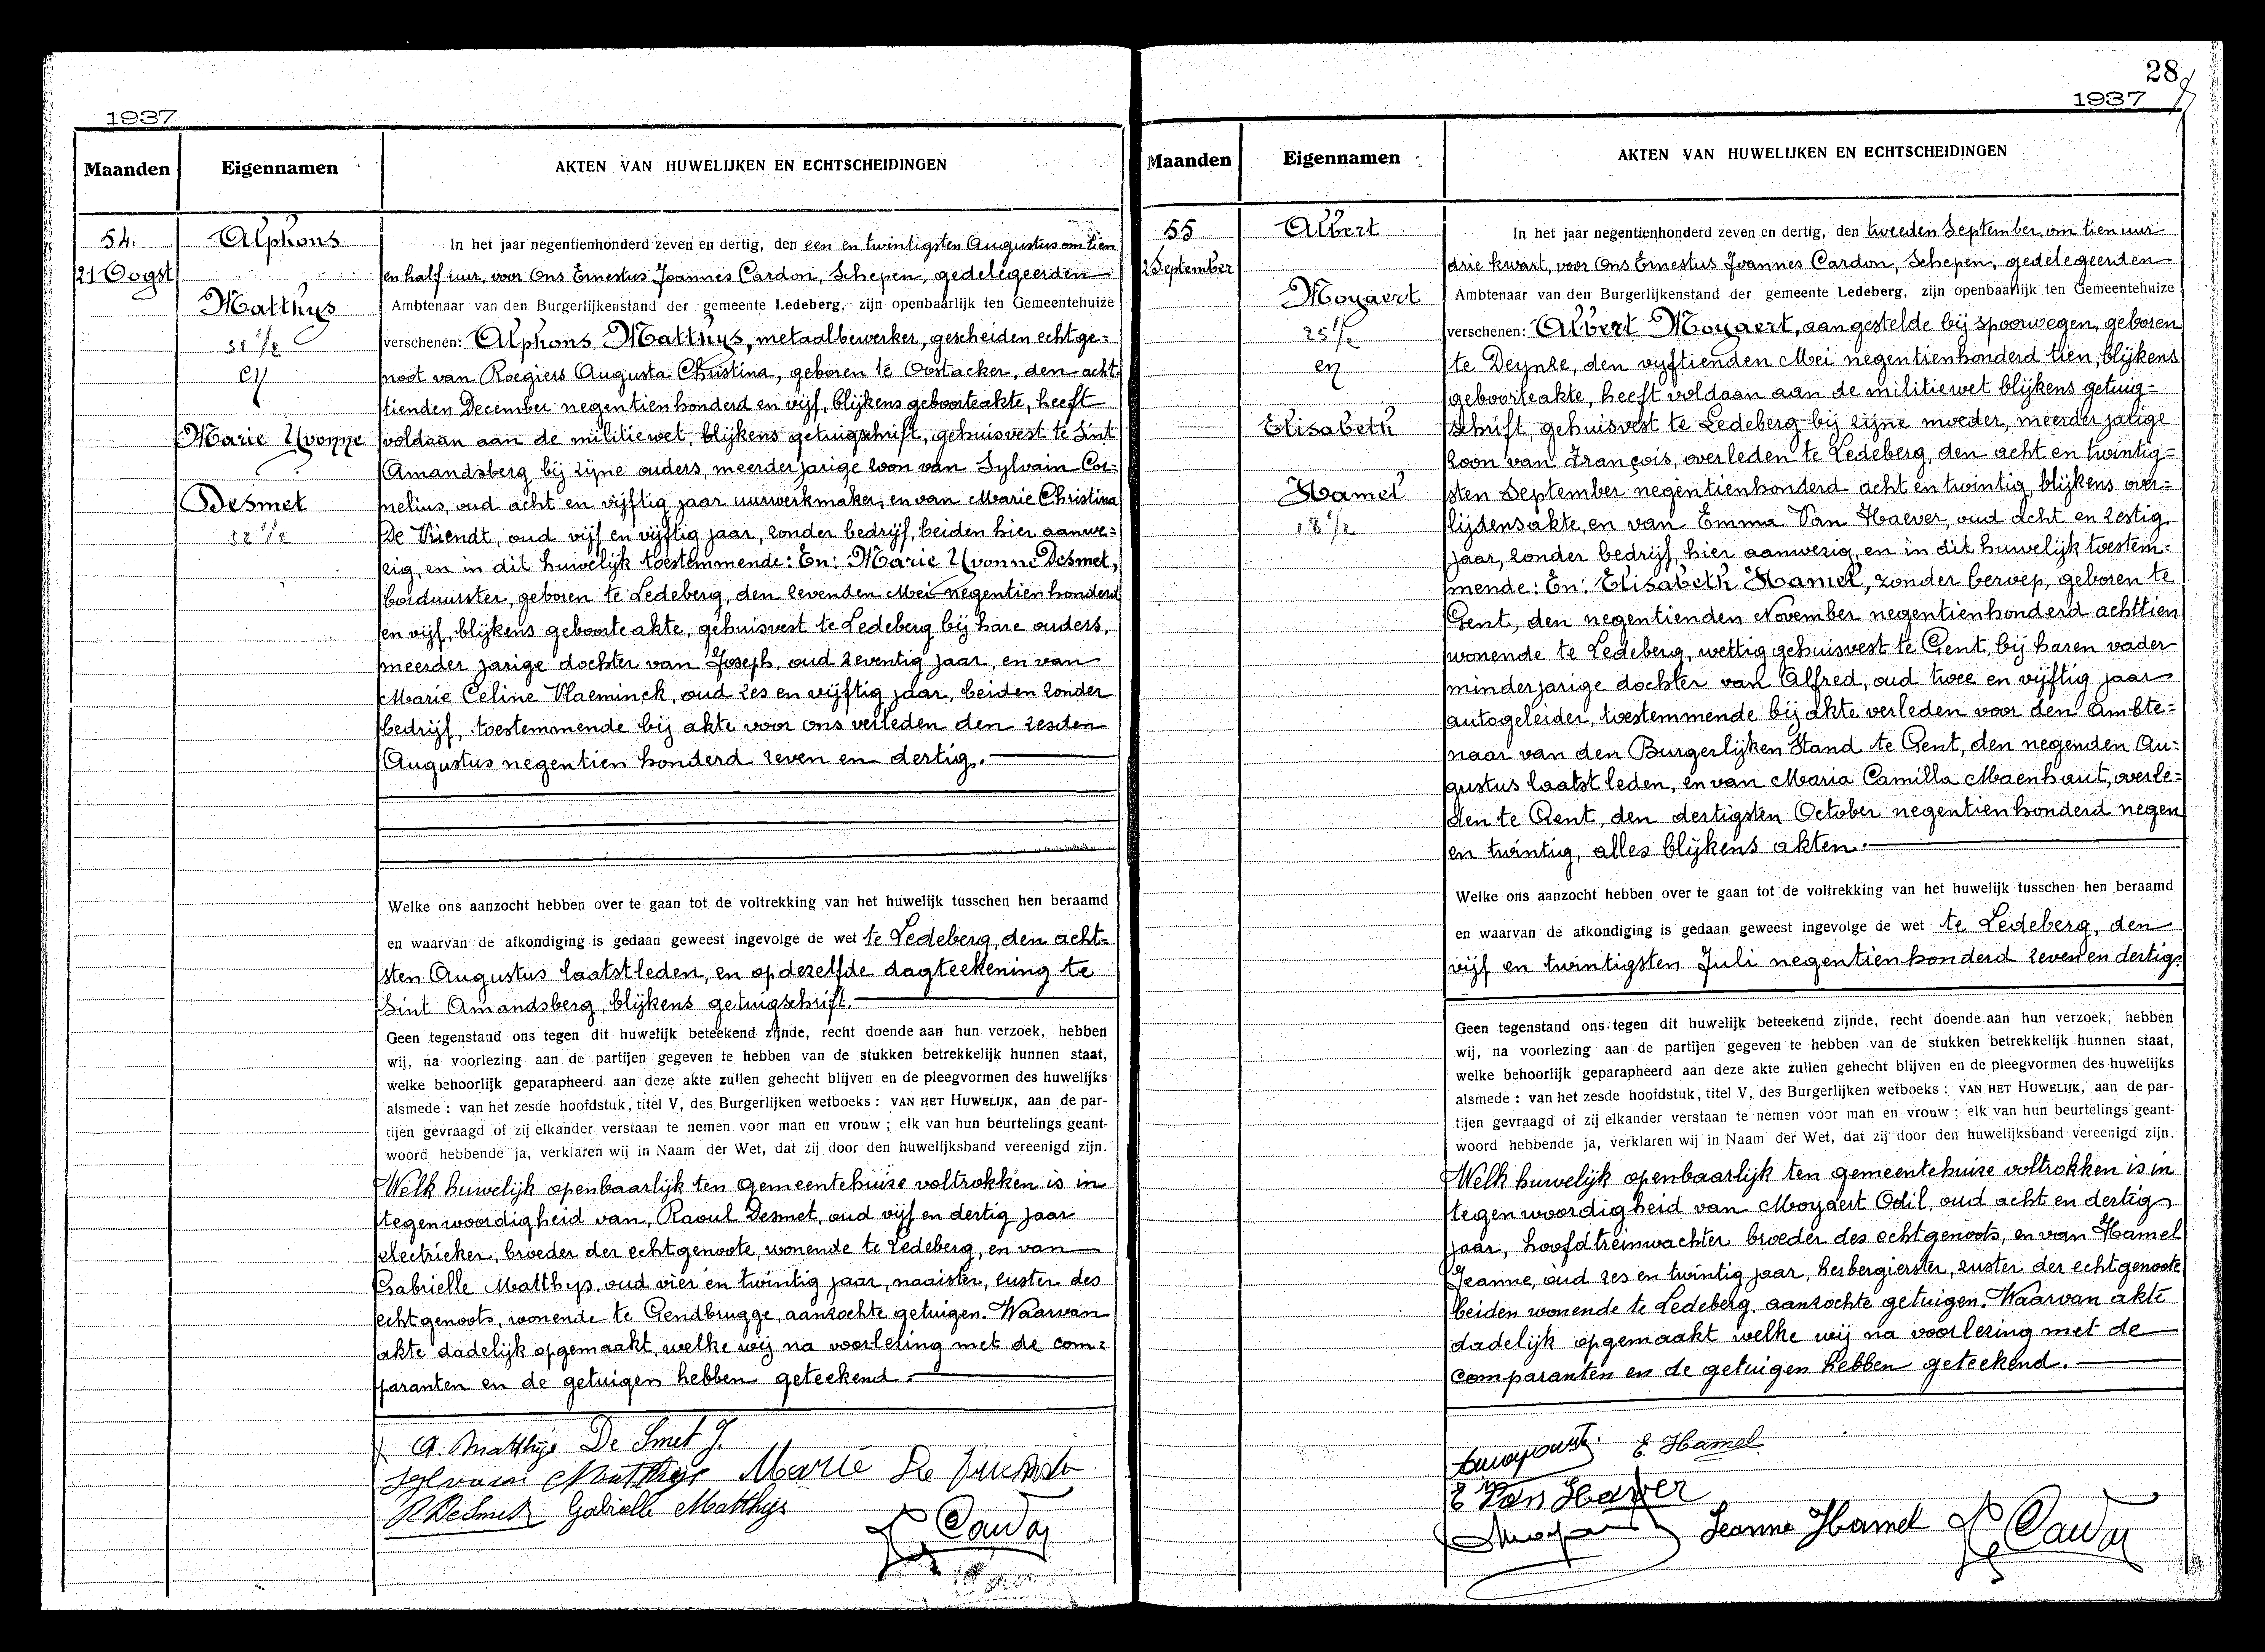 1937
Maanden Eigennamen AKTEN VAN HUWELIJKEN EN ECHTSCHEIDINGEN
54.
21 Oogst
Alphons
Matthys
31 1/2
en
Marie Yvonne
Desmet
32 1/2
In het jaar negentienhonderd zeven en dertig, den een en twintigsten Augustus om tien
en half uur, voor Ons Ernestus Joannes Cardon, Schepen, gedelegeerden
Ambtenaar van den Burgerlijkenstand der gemeente Ledeberg, zijn openbaarlijk ten Gemeentehuize
verschenen: Alphons Matthys, metaalbewerker, gescheiden echtge=
noot van Roegiers Augusta Christina, geboren te Oostacker, den acht=
tienden December negentienhonderd en vijf, blijkens geboorteakte, heeft
voldaan aan de militiewet, blijkens getuigschrift, gehuisvest te Sint
Amandsberg bij zijne ouders, meerderjarige zoon van Sylvain Cor=
nelius, oud acht en vijftig jaar uurwerkmaker, en van Marie Christina
De Vriendt, oud vijf en vijftig jaar, zonder bedrijf, beiden hier aanwe=
zig, en in dit huwelijk toestemmende: En: Marie Yvonne Desmet,
borduurster, geboren te Ledeberg, den zevenden Mei negentien honderd
en vijf, blijkens geboorteakte, gehuisvest te Ledeberg bij hare ouders,
meerder jarige dochter van Joseph, oud zeventig jaar, en van
Marie Celine Vlaeminck, oud zes en vijftig jaar, beiden zonder
bedrijf, toestemmende bij akte voor ons verleden den zesden
Augustus negentien honderd zeven en dertig.
Welke ons aanzocht hebben over te gaan tot de voltrekking van het huwelijk tusschen hen beraamd
en waarvan de afkondiging is gedaan geweest ingevolge de wet te Ledeberg, den acht=
sten Augustus laatstleden, en op dezelfde dagteekening te
Sint Amandsberg, blijkens getuigschrift.
Geen tegenstand ons tegen dit huwelijk beteekend zijnde, recht doende aan hun verzoek, hebben
wij, na voorlezing aan de partijen gegeven te hebben van de stukken betrekkelijk hunnen staat,
welke behoorlijk geparapheerd aan deze akte zullen gehecht blijven en de pleegvormen des huwelijks
alsmede : van het zesde hoofdstuk, titel V, des Burgerlijken wetboeks : VAN HET HUWELIJK, aan de par-
tijen gevraagd of zij elkander verstaan te nemen voor man en vrouw ; elk van hun beurtelings geant-
woord hebbende ja, verklaren wij in Naam der Wet, dat zij door den huwelijksband vereenigd zijn.
Welk huwelijk openbaarlijk ten gemeentehuize voltrokken is in
tegenwoordigheid van, Raoul Desmet, oud vijf en dertig jaar
electrieker, broeder der echtgenoote, wonende te Ledeberg, en van
Gabrielle Matthys oud vier en twintig jaar, naaister, zuster des
echtgenoots, wonende te Gendbrugge, aanzochte getuigen. Waarvan
akte dadelijk opgemaakt, welke wij na voorlezing met de com=
paranten en de getuigen hebben geteekend.
A. Matthijs De Smet J.
Sylvain Matthys Marie De Vriendt
R DeSmet Gabrielle Matthys
Cardon
28
1937
Maanden Eigennamen AKTEN VAN HUWELIJKEN EN ECHTSCHEIDINGEN
55
2 September
Albert
Moyaert
25 1/2
en
Elisabeth
Hamel
18 1/2
In het jaar negentienhonderd zeven en dertig, den tweeden September, om tien uur
drie kwart, voor Ons Ernestus Joannes Cardon, Schepen, gedelegeerden
Ambtenaar van den Burgerlijkenstand der gemeente Ledeberg, zijn openbaarlijk ten Gemeentehuize
verschenen: Albert Moyaert, aangestelde bij spoorwegen, geboren
te Deynze, den vijftienden Mei negentienhonderd tien, blijkens
geboorteakte, heeft voldaan aan de militiewet blijkens getuig=
schrift, gehuisvest te Ledeberg bij zijne moeder, meerderjarige
zoon van François, overleden te Ledeberg, den acht en twintig=
sten September negentienhonderd acht en twintig, blijkens over=
lijdensakte, en van Emma Van Haever, oud acht en zestig
jaar, zonder bedrijf, hier aanwezig, en in dit huwelijk toestem=
mende: En: Elisabeth Hamel, zonder beroep, geboren te
Gent, den negentienden November negentienhonderd achttien
wonende te Ledeberg, wettig gehuisvest te Gent, bij haren vader
minderjarige dochter van Alfred, oud twee en vijftig jaar
autogeleider, toestemmende bij akte verleden voor den Ambte=
naar van den Burgerlijken Stand te Gent, den negenden Au=
gustus laatst leden, en van Maria Camilla Maenhaut, overle=
den te Gent, den dertigsten October negentienhonderd negen
en twintig, alles blijkens akten.
Welke ons aanzocht hebben over te gaan tot de voltrekking van het huwelijk tusschen hen beraamd
en waarvan de afkondiging is gedaan geweest ingevolge de wet te Ledeberg, den
vijf en twintigsten Juli negentienhonderd zeven en dertig.
Geen tegenstand ons tegen dit huwelijk beteekend zijnde, recht doende aan hun verzoek, hebben
wij, na voorlezing aan de partijen gegeven te hebben van de stukken betrekkelijk hunnen staat,
welke behoorlijk geparapheerd aan deze akte zullen gehecht blijven en de pleegvormen des huwelijks
alsmede : van het zesde hoofdstuk, titel V, des Burgerlijken wetboeks : VAN HET HUWELIJK, aan de par-
tijen gevraagd of zij elkander verstaan te nemen voor man en vrouw ; elk van hun beurtelings geant-
woord hebbende ja, verklaren wij in Naam der Wet, dat zij door den huwelijksband vereenigd zijn.
Welk huwelijk openbaarlijk ten gemeentehuize voltrokken is in
tegenwoordigheid van Moyaert Odil, oud acht en dertig
jaar, hoofdtreinwachter broeder des echtgenoots, en van Hamel
Jeanne, oud zes en twintig jaar, herbergierster, zuster der echtgenoote
beiden wonende te Ledeberg aanzochte getuigen. Waarvan akte
dadelijk opgemaakt welke wij na voorlezing met de
comparanten en de getuigen hebben geteekend.
E. Hamel
E Van Haever
Jeanne Hamel Cardon